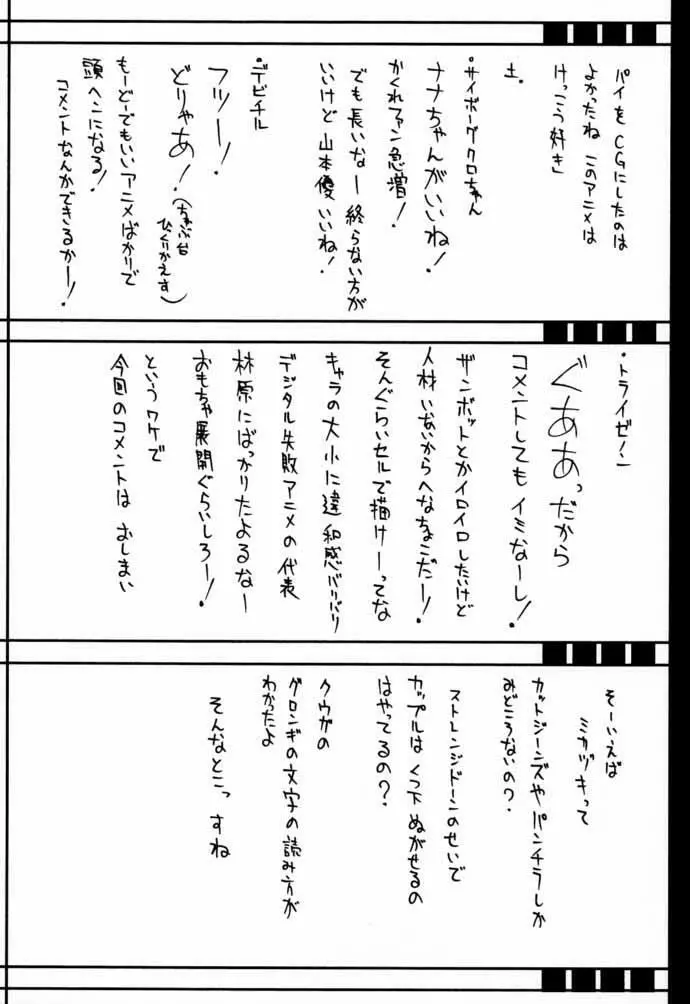 パイをCGにしたのは
よかったね このアニメは
けっこう好き」
土.
・サイボーグクロちゃん
ナナちゃんがいいね!
かくれファン急増!
でも長いなー終らない方が
いいけど 山本優いいね!
・デビチル
フツー!
どりゃあ!(ちゃぶ台
ひっくりかえす)
もーどーでもいいアニメばかりで
頭ヘンになる!
コメントなんかできるかー!
・トライゼノン
ぐああっだから
コメントしてもイミなーし!
ザンボットとかイロイロしたいけど
人材いないからへなちょこだー!
そんぐらいセルで描けーってな
キャラの大小に違和感バリバリ
デジタル失敗アニメの代表
林原にばっかりたよるなー
おもちゃ展開ぐらいしろー!
というワケで
今回のコメントは おしまい
そーいえば
ミカヅキって
カットジーンズやパンチラしか
みどころないの?
ストレンジドーンのせいで
カップルはくつ下ぬがせるの
はやってるの?
クウガの
グロンギの文字の読み方が
わかったよ
そんなとこっすね